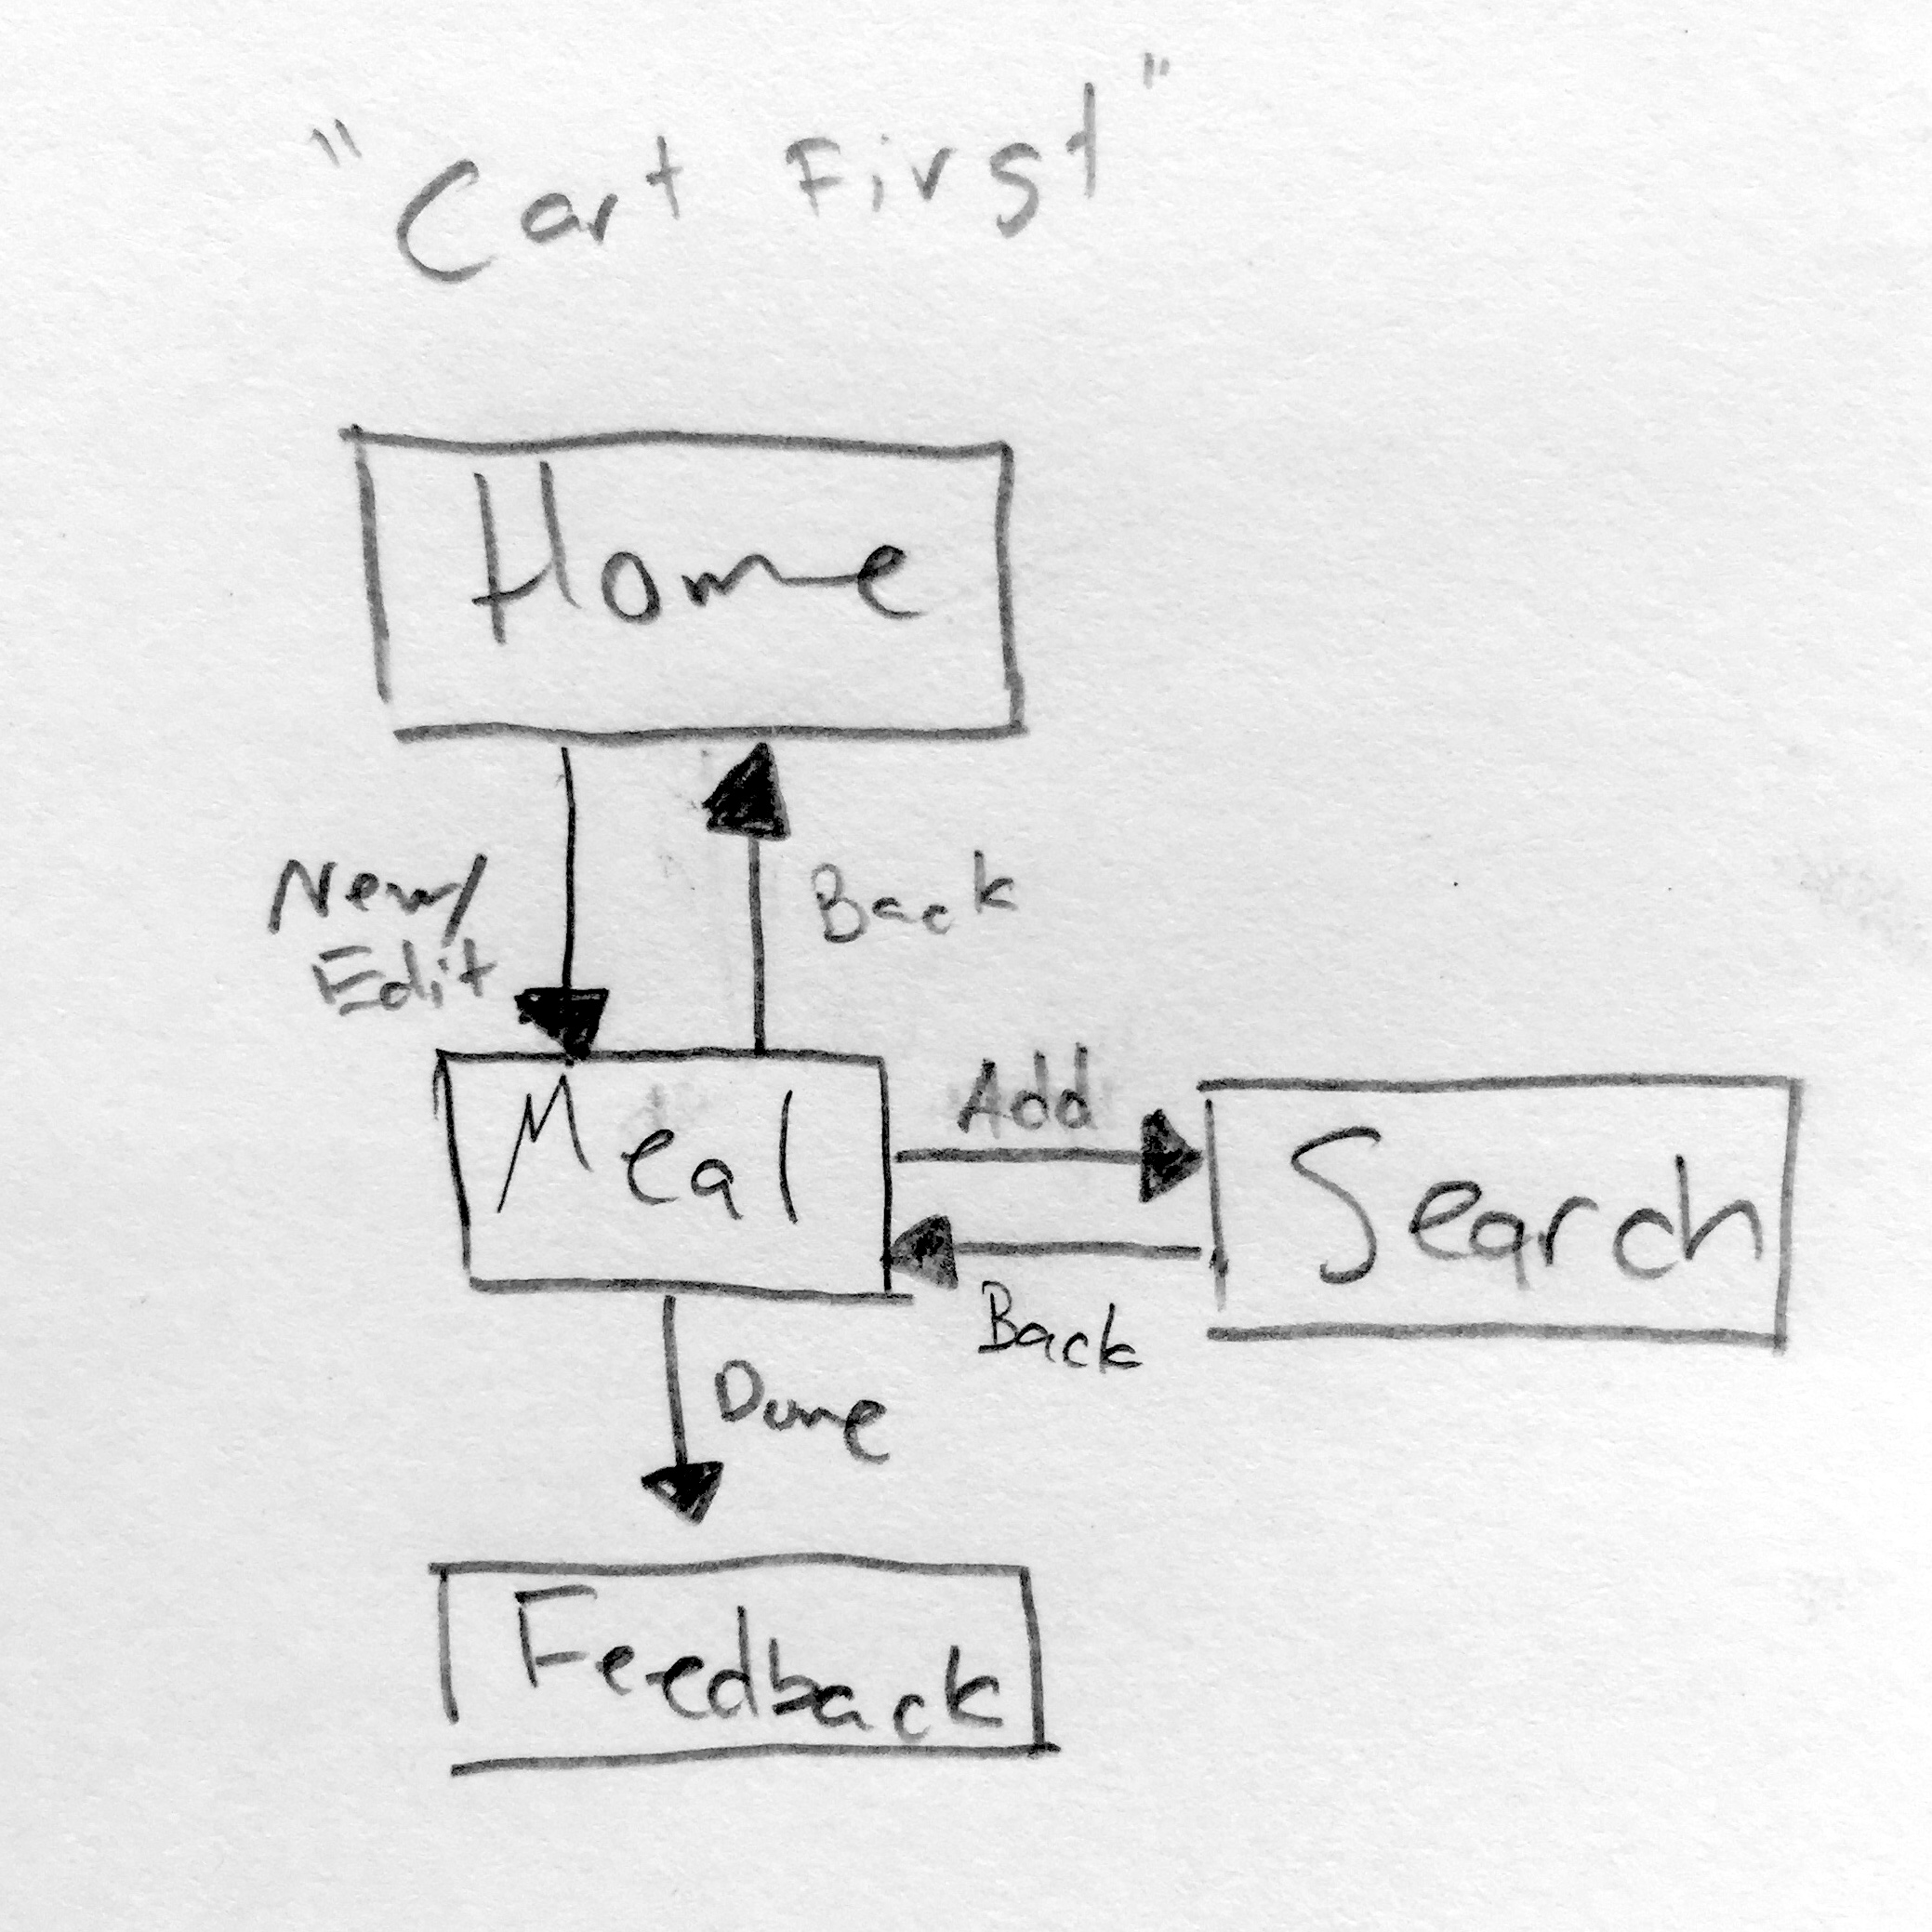 "Cart First"
Home
New/
Edit
Back
Meal
Add
Search
Back
Done
Feedback